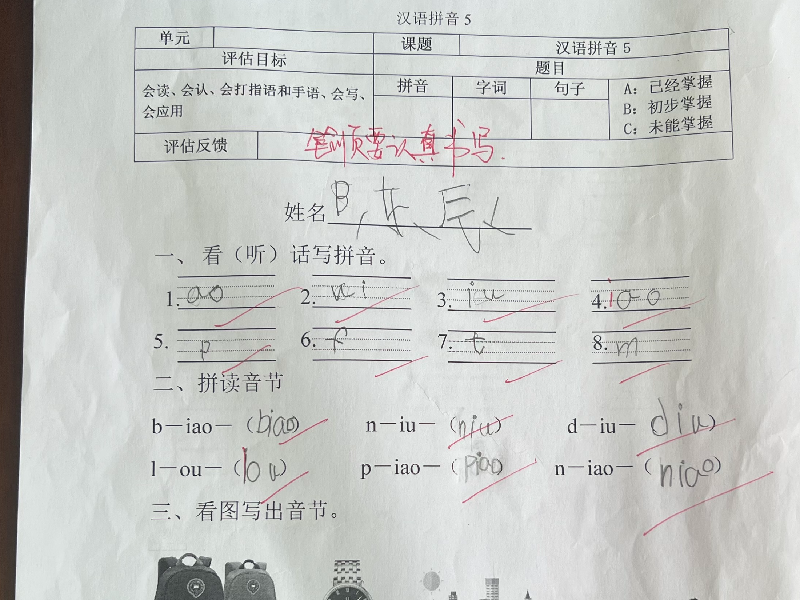 汉语拼音 5
单元 课题 汉语拼音 5
评估目标 题目
会读、会认、会打指语和手语、会写、会应用 拼音 字词 句子 A：已经掌握
B：初步掌握
C：未能掌握
评估反馈 笔顺要认真书写.
姓名 B
一、看（听）话写拼音。
1. ao 2. ui 3. iu 4. iao
5. p 6. f 7. t 8. m
二、拼读音节
b－iao－（biao） n－iu－（niu） d－iu－ diu）
l－ou－（lou） p－iao－（piao） n－iao－（niao）
三、看图写出音节。